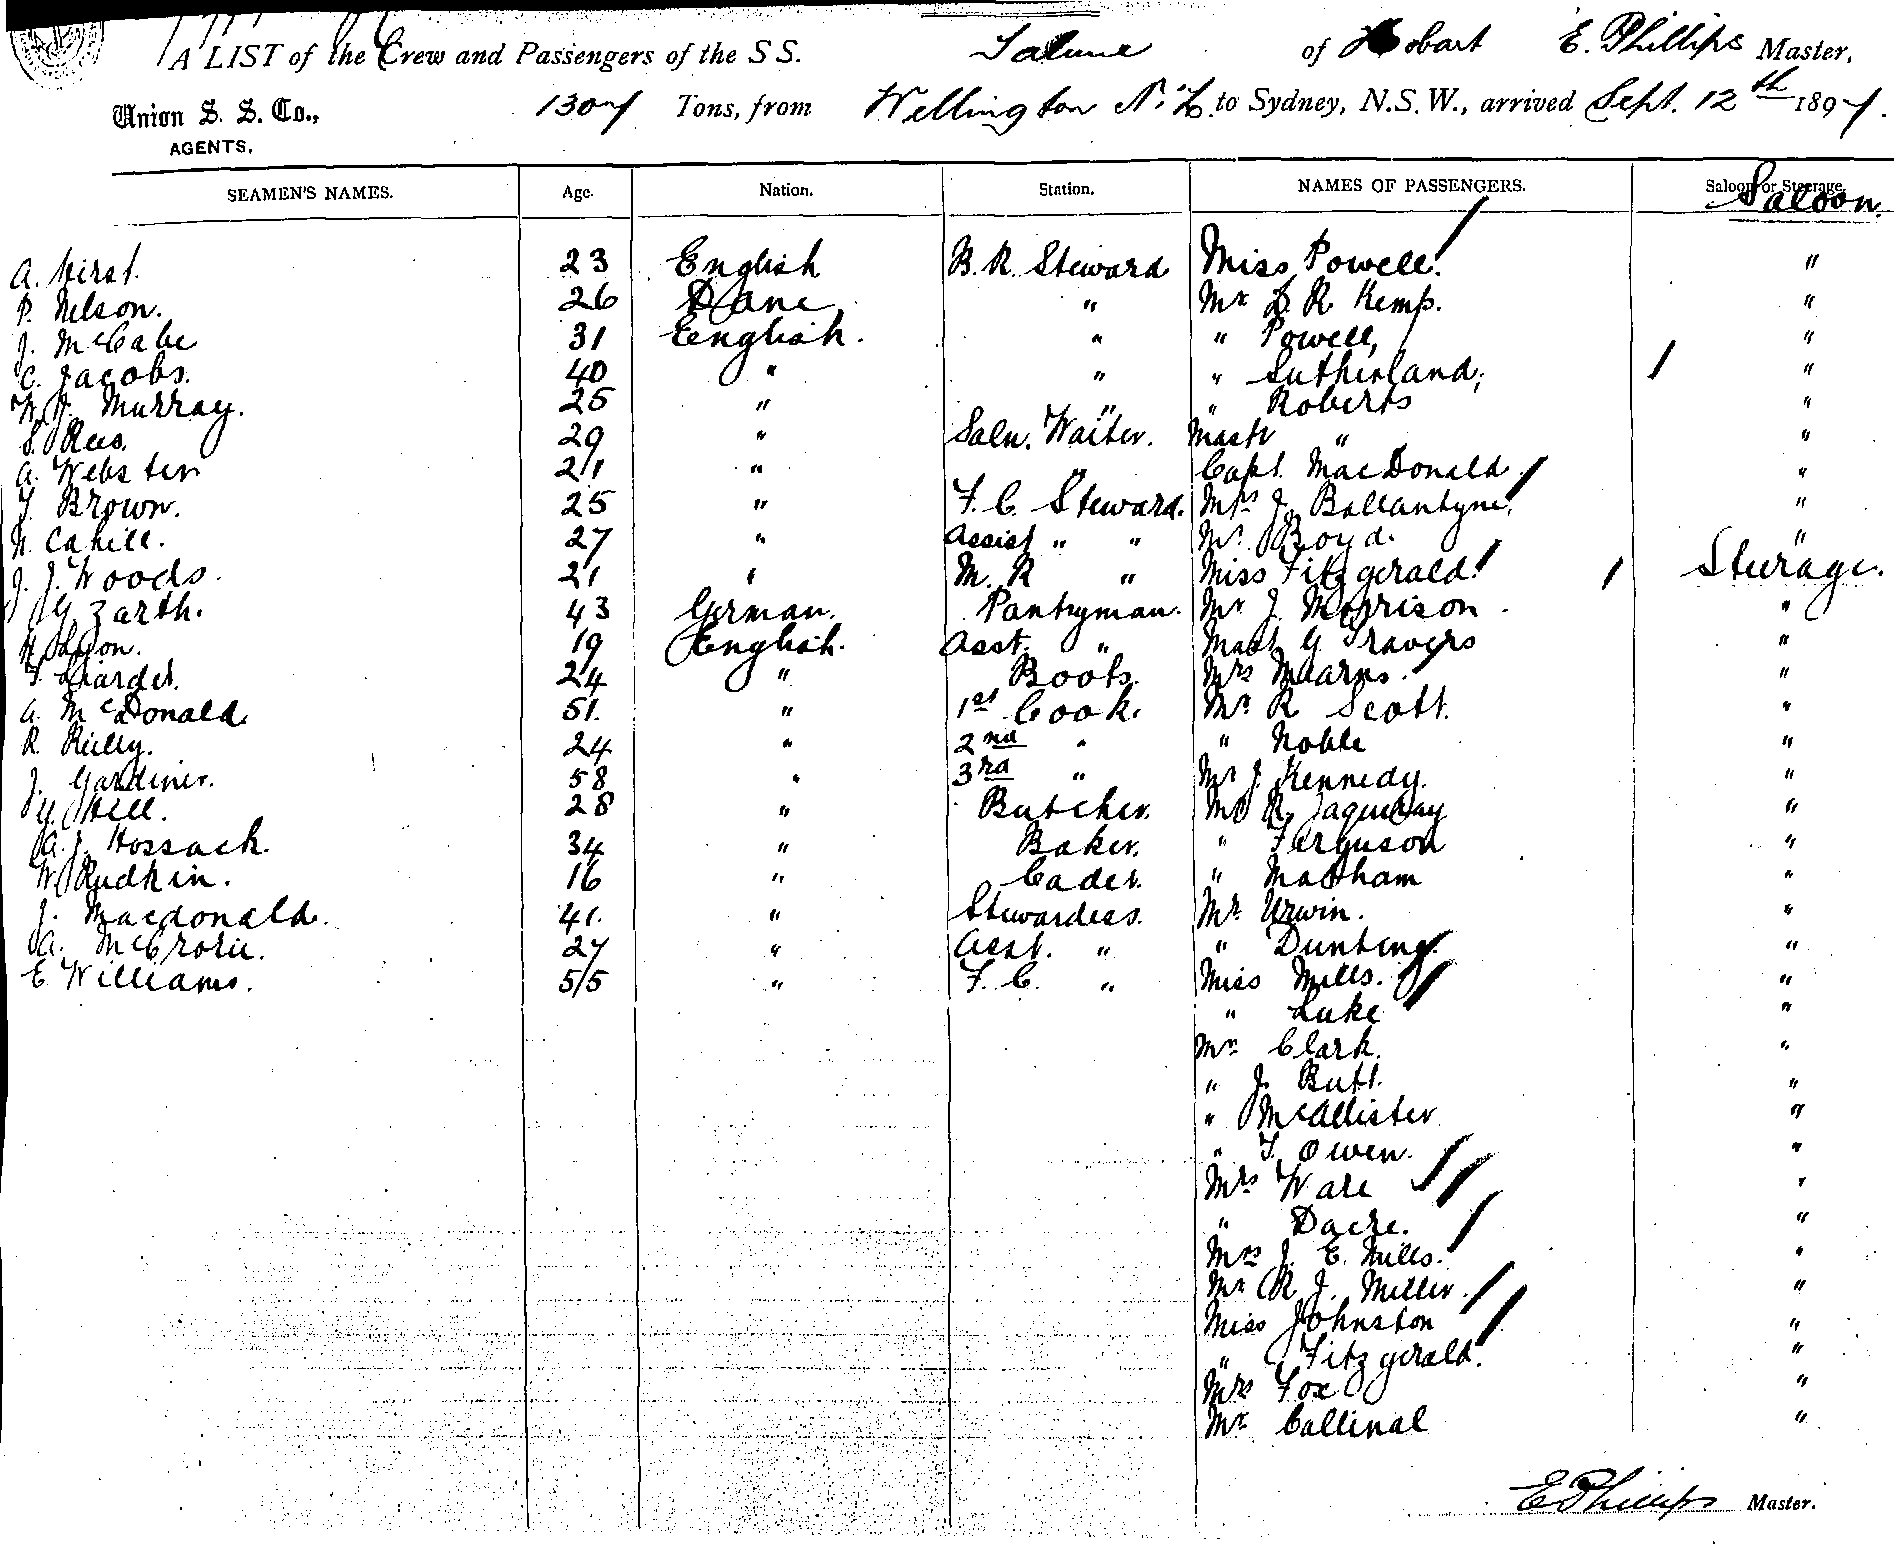 A LIST of the Crew and Passengers of the S S. Talune of Hobart E. Phillips Master,
Union S. S. Co., 1307 Tons, from Wellington N.Z. to Sydney, N.S.W., arrived Sept. 12th 1897.
AGENTS.
SEAMEN'S NAMES. Age. Nation. Station. NAMES OF PASSENGERS. Saloon or Steerage.
Saloon.
A. Hirst. 23 English B. R. Steward Miss Powell. "
P. Nelson. 26 Dane " Mr R Kemp. "
J. McCabe 31 English. " " Powell, "
C. Jacobs. 40 " " " Sutherland, "
W. J. Murray. 25 " " " Roberts "
S. Rees. 29 " Saln. Waiter. Mastr " "
A. Webster 21 " " Capt. MacDonald "
T. Brown. 25 " F. C. Steward. Mrs J. Ballantyne. "
N. Cahill. 27 " Assist " " Mr. Boyd. "
J. J. Woods. 21 " M. R " Miss Fitzgerald. Steerage.
G. Zarth. 43 German. Pantryman. Mr J. Morrison "
H 19 English. Asst. " Mast. G Travers "
24 " Boots. Mrs Mearns. "
A. McDonald 51. " 1st Cook. Mr R Scott. "
R. Reilly. 24 " 2nd " " Noble "
J. Gardiner. 58 " 3rd " Mr J. Kennedy. "
G. Hill. 28 " Butcher. Mr R. "
A. J. Hossack. 34 " Baker. " Ferguson "
W. Rudkin. 16 " Cadet. " "
J. Macdonald. 41. " Stewardess. Mr. Urwin. "
A. McCrorie. 27 " Asst. " " Dunting. "
E Williams. 55 " F. C. " Miss Mills. "
" Luke "
Mr Clark. "
" J. Butt. "
" McAllister "
" T. Owen. "
Mrs Ware "
" Dacre. "
Mrs J. E. Mills. "
Mr R. J. Miller. "
Miss Johnston "
" Fitzgerald. "
Mrs Fox "
Mr Callinal "
E Phillips Master.